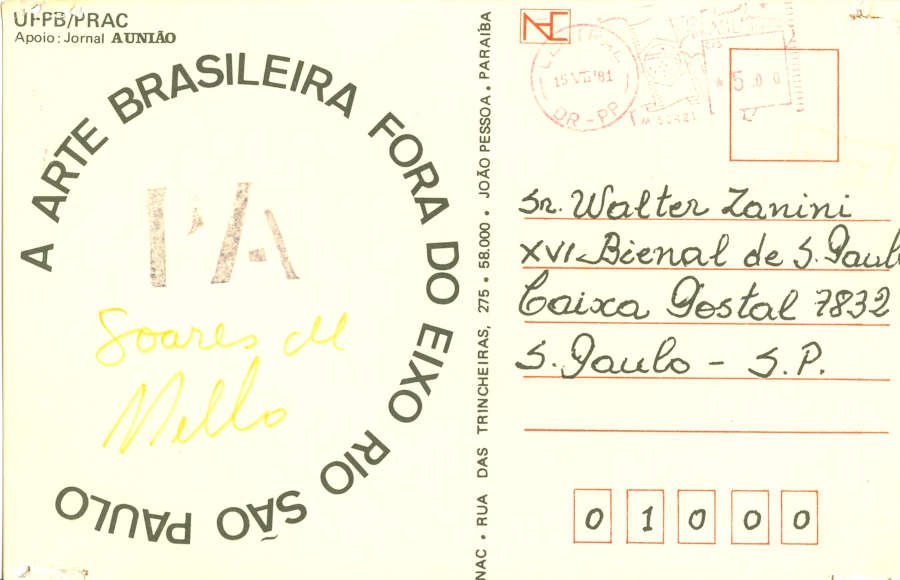 UFPB/PRAC
Apoio: Jornal A UNIÃO
A ARTE BRASILEIRA FORA DO EIXO RIO SÃO PAULO
PA
Soares de
Mello
NAC • RUA DAS TRINCHEIRAS, 275 • 58.000 • JOÃO PESSOA • PARAÍBA
NAC
CENTRAL
15 VII 81
DR-PP
* 5.00
Sr. Walter Zanini
XVI-Bienal de S. Paulo
Caixa Postal 7832
S. Paulo - S.P.
0 1 0 0 0